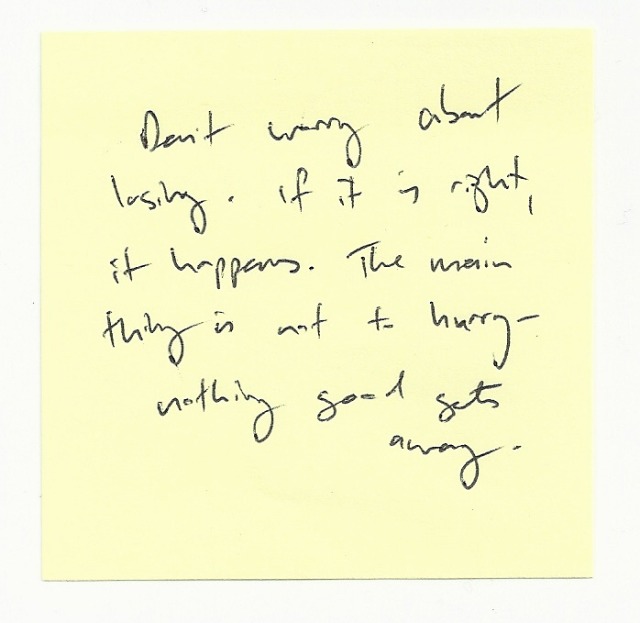 Don't worry about
losing. if it is right,
it happens. The main
thing is not to hurry-
nothing good gets
away.